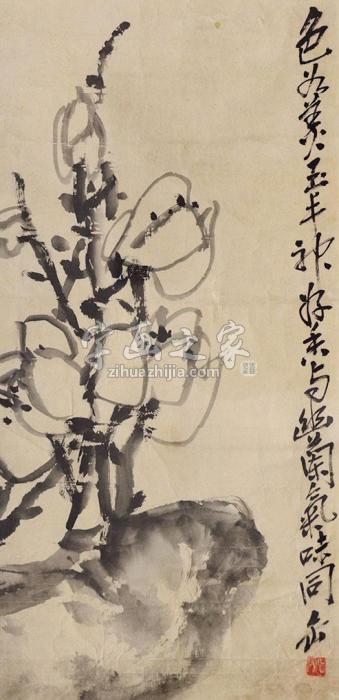 色如美玉丰神好香与幽兰氣味同缶
字画之家
zihuazhijia.com